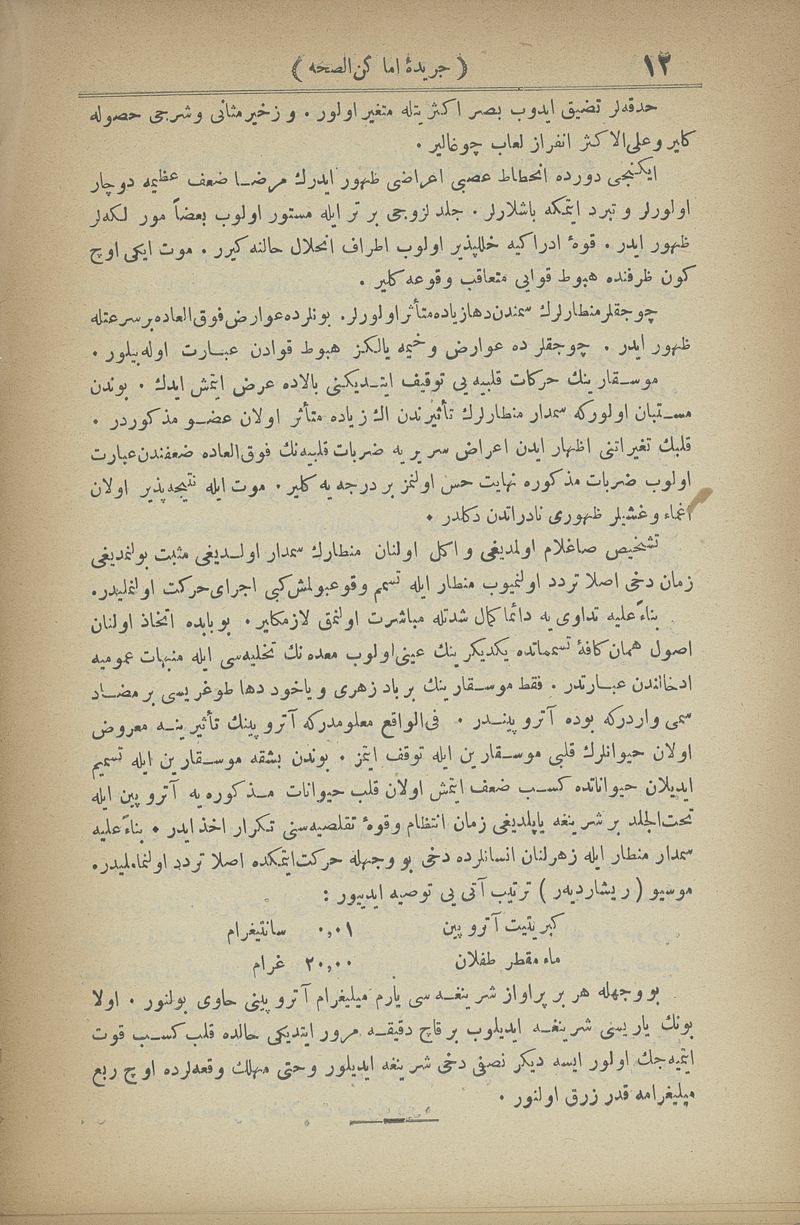 ١٢
( جريدۀ اما كن الصحه )
حدقه‌لر تضيق ايدوب بصر اكثريتله متغير اولور . و زخير مثانى و شرجى حصوله
كلير و على الاكثر انفراز لعاب چوغالير .
ايكنجى دورده انحطاط عصبى اعراضى ظهور ايدرك مرضا ضعف عظيمه دوچار
اولورلر و تبرد ايتمكه باشلارلر . جلد لزوجى بر تر ايله مستور اولوب بعضاً مور لكه‌لر
ظهور ايدر . قوۀ ادراكيه خللپذير اولوب اطراف انحلال حالنه كيرر . موت ايكى اوچ
كون ظرفنده هبوط قوايى متعاقب وقوعه كلير .
چوجقلر منطارلرك سمندن دها زياده متأثر اولورلر. بونلرده عوارض فوق العاده بر سرعتله
ظهور ايدر . چوجقلر ده عوارض وخيمه يالكز هبوط قوادن عبارت اوله بيلور .
موسقارينك حركات قلبيه يى توقيف ايتديكنى بالاده عرض ايتمش ايدك . بوندن
مستبان اولوركه سمدار منطارلرك تأثيرندن اك زياده متأثر اولان عضو مذكوردر .
قلبك تغيراتنى اظهار ايدن اعراض سريريه ضربات قلبيه‌نك فوق العاده ضعفندن عبارت
اولوب ضربات مذكوره نهايت حس اولنمز بر درجه يه كلير . موت ايله نتيجه‌پذير اولان
اغماء و غشيلر ظهورى نادراتدن دكلدر .
تشخيص صاغلام اولمديغى و اكل اولنان منطارك سمدار اولديغى مثبت بولنمديغى
زمان دخى اصلا تردد اولنميوب منطار ايله تسمم وقوعبولمش كبى اجراى حركت اولنمليدر.
بناءً عليه تداوى يه دائما كمال شدتله مباشرت اولنمق لازمكلير . بو بابده اتخاذ اولنان
اصول همان كافۀ تسمماتده يكديكرينك عينى اولوب معده نك تخليه‌سى ايله منبهات عموميه
ادخالندن عبارتدر . فقط موسقارينك بر پاد زهرى و ياخود دها طوغريسى بر مضاد
سمى واردركه بوده آتروپيندر . فى الواقع معلومدركه آتروپينك تأثيرينه معروض
اولان حيوانلرك قلبى موسقارين ايله توقف ايتمز . بوندن بشقه موسقارين ايله تسميم
ايديلان حيواناتده كسب ضعف ايتمش اولان قلب حيوانات مذكوره يه آتروپين ايله
تحت الجلد بر شرينغه ياپلديغى زمان انتظام و قوۀ تقلصيه‌سنى تكرار اخذ ايدر . بناءً عليه
سمدار منطار ايله زهرلنان انسانلرده دخى بو وجهله حركت ايتمكده اصلا تردد اولنمامليدر.
موسيو ( ريشارديه‌ر ) ترتيب آتى يى توصيه ايدييور :
كبريتيت آتروپين ٠,٠١ سانتيغرام
ماء مقطر طفلان ٢٠,٠٠ غرام
بو وجهله هر بر پراواز شرينغه سى يارم ميليغرام آتروپينى حاوى بولنور . اولا
بونك ياريسى شرينغه ايديلوب بر قاچ دقيقه مرور ايتديكى حالده قلب كسب قوت
ايتميه‌جك اولور ايسه ديكر نصفى دخى شرينغه ايديلور و حتى مهلك وقعه‌لرده اوچ ربع
ميليغرامه قدر زرق اولنور .